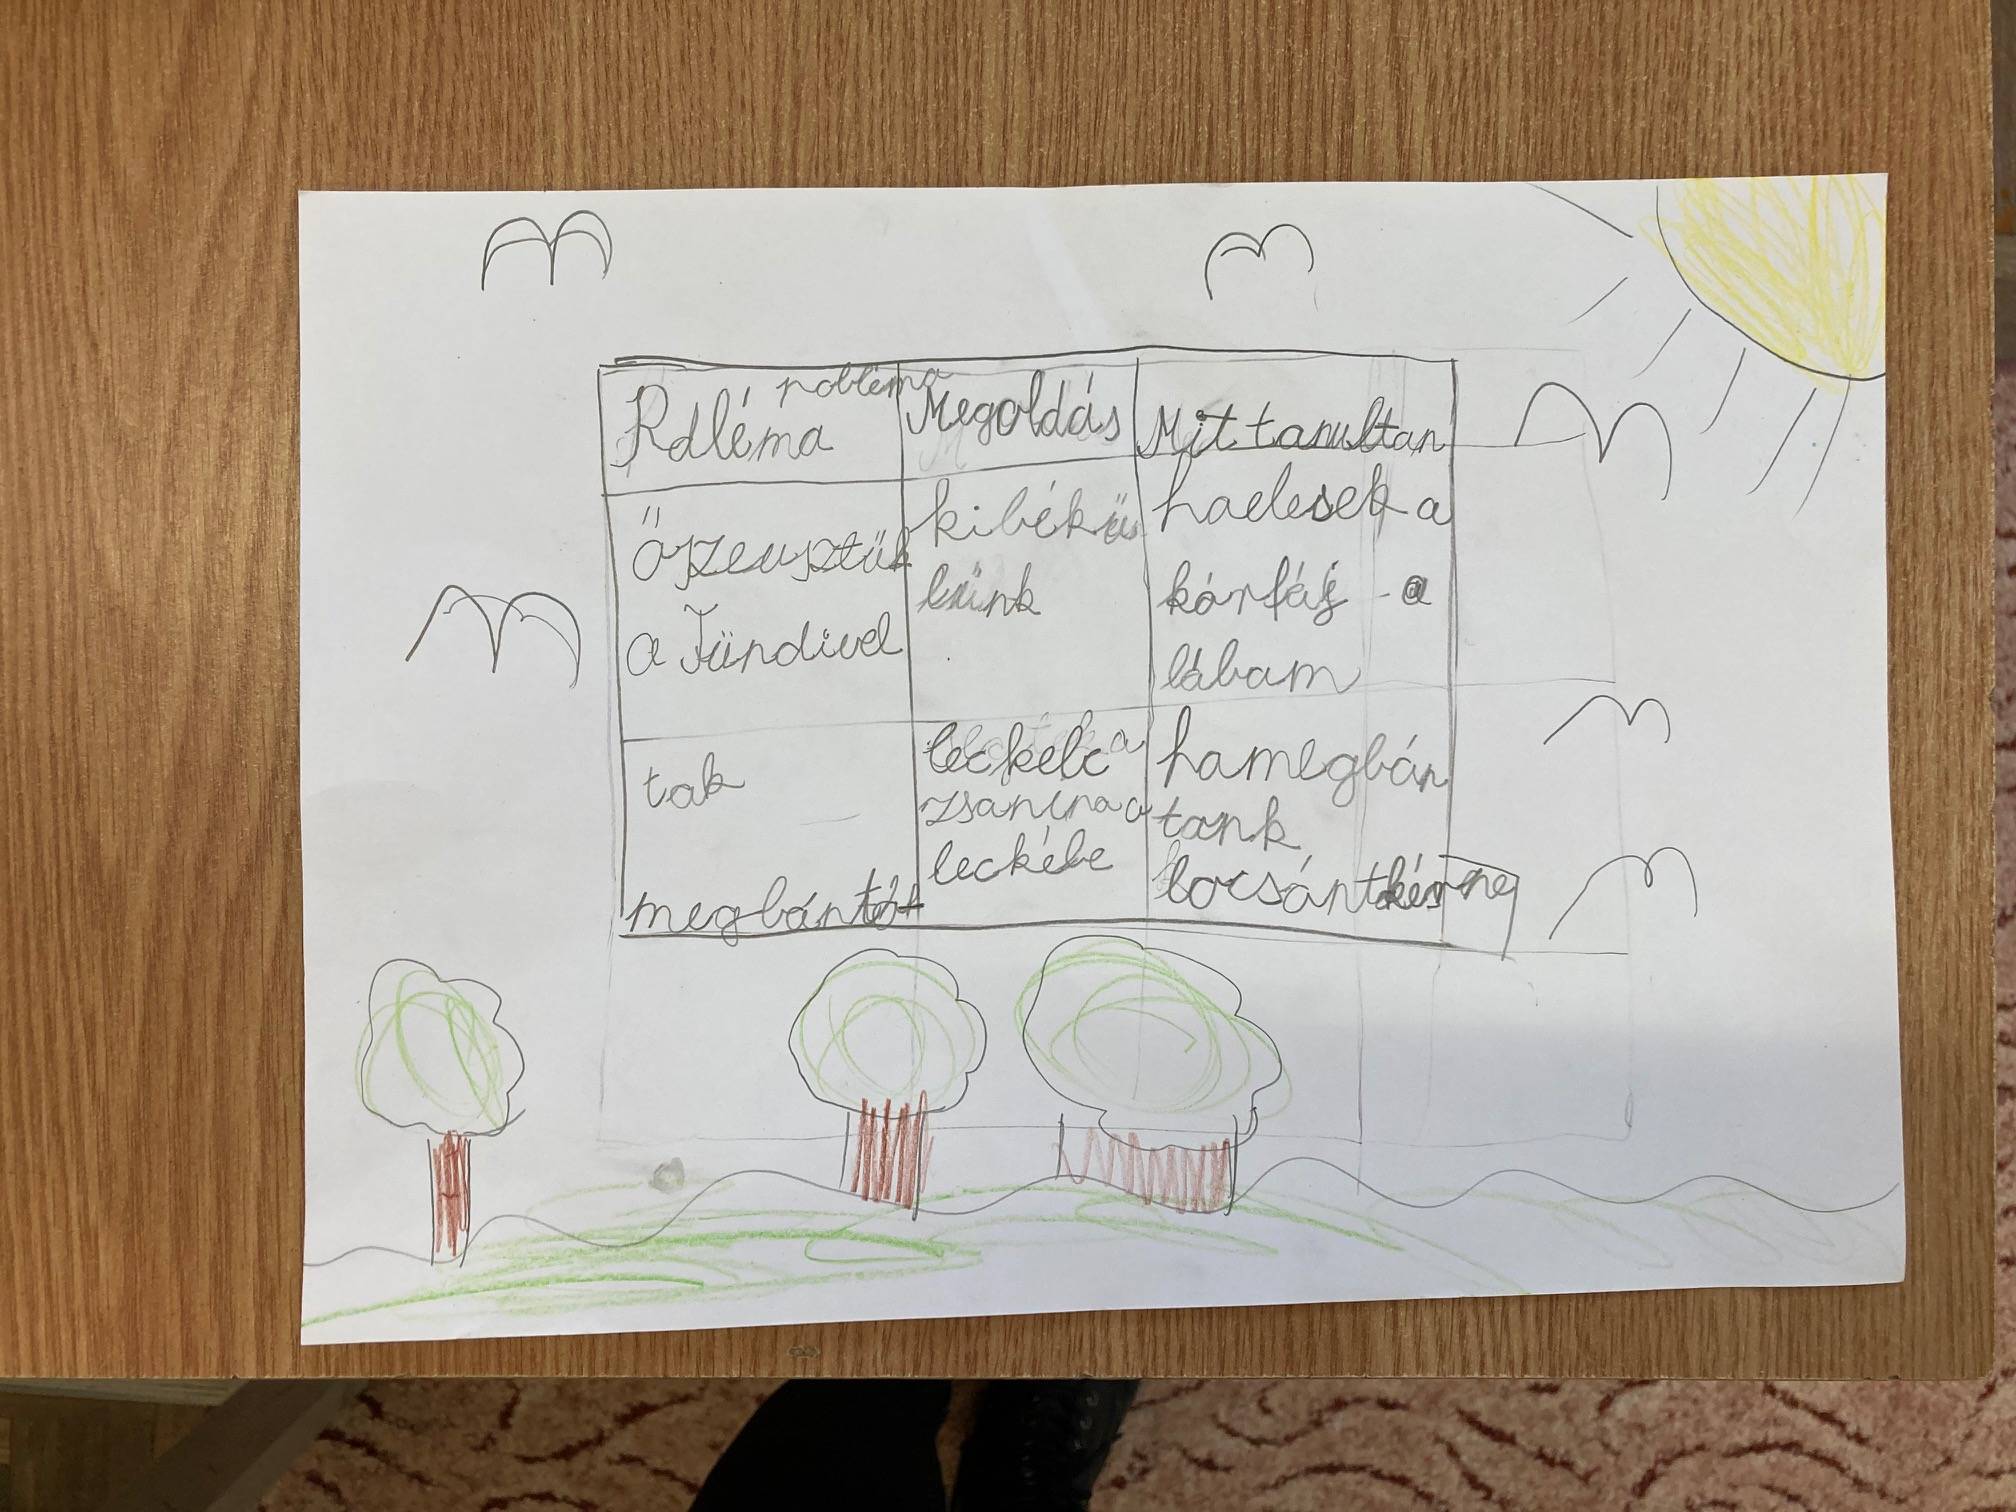 robléma
Rdléma
Megoldás
Mit tanultan
őszeusztük
a Tündivel
kibékü
lünk
haelesek a
kórfáj a
lábam
tak
megbántót
a
leckébe
hamegbán
tank
bocsántkérne